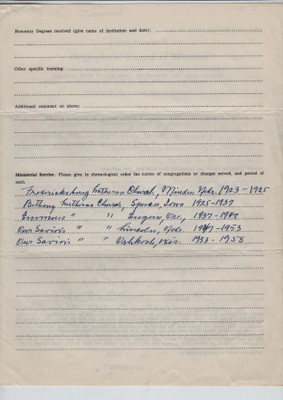 Honorary Degrees received (give name of institution and date):
Other specific training:
Additional comment on above:
Ministerial Service. Please give in chronological order the names of congregations or charges served, and period of
each.
Fredericksburg Lutheran Church, Minden Nebr. 1923-1925
Bethany Lutheran Church, Spencer, Iowa 1925-1937
" " Eugene, Ore., 1937-1947
Our Saviors " " Lincoln, Nebr. 1947-1953
Our Saviors " " Oshkosh, Wis. 1953-1958